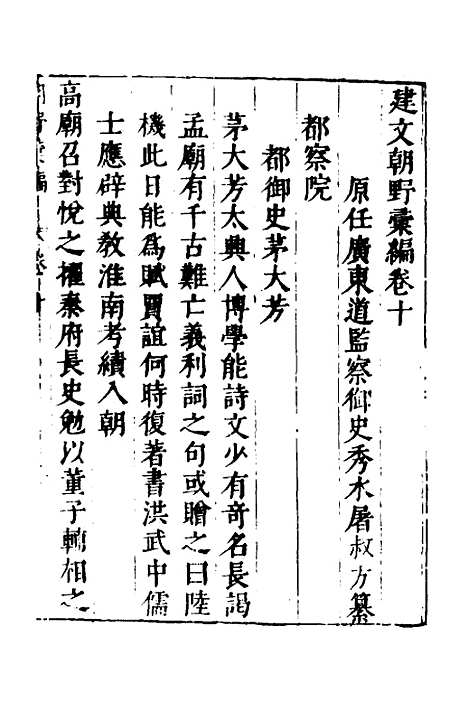 建文朝野彙編卷十
原任廣東道監察御史秀水屠叔方纂
都察院
都御史茅大芳
茅大芳太興人博學能詩文少有奇名長謁
孟廟有千古難亡義利詞之句或贈之曰陸
機此日能爲賦賈誼何時復著書洪武中儒
士應辟典教淮南考績入朝
高廟召對悅之擢秦府長史勉以董子輔相之